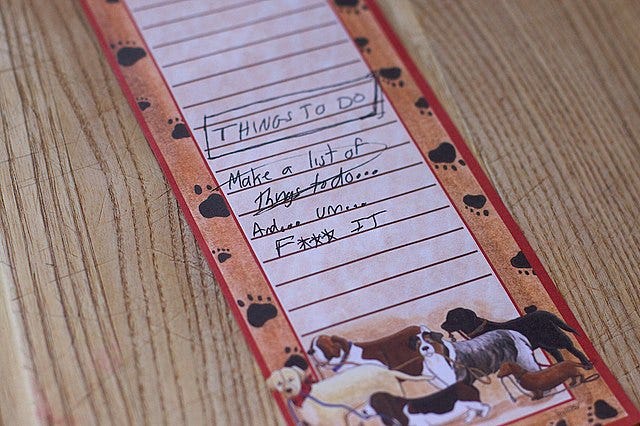 THINGS TO DO
Make a list of
things to do...
And... um...
F*** IT